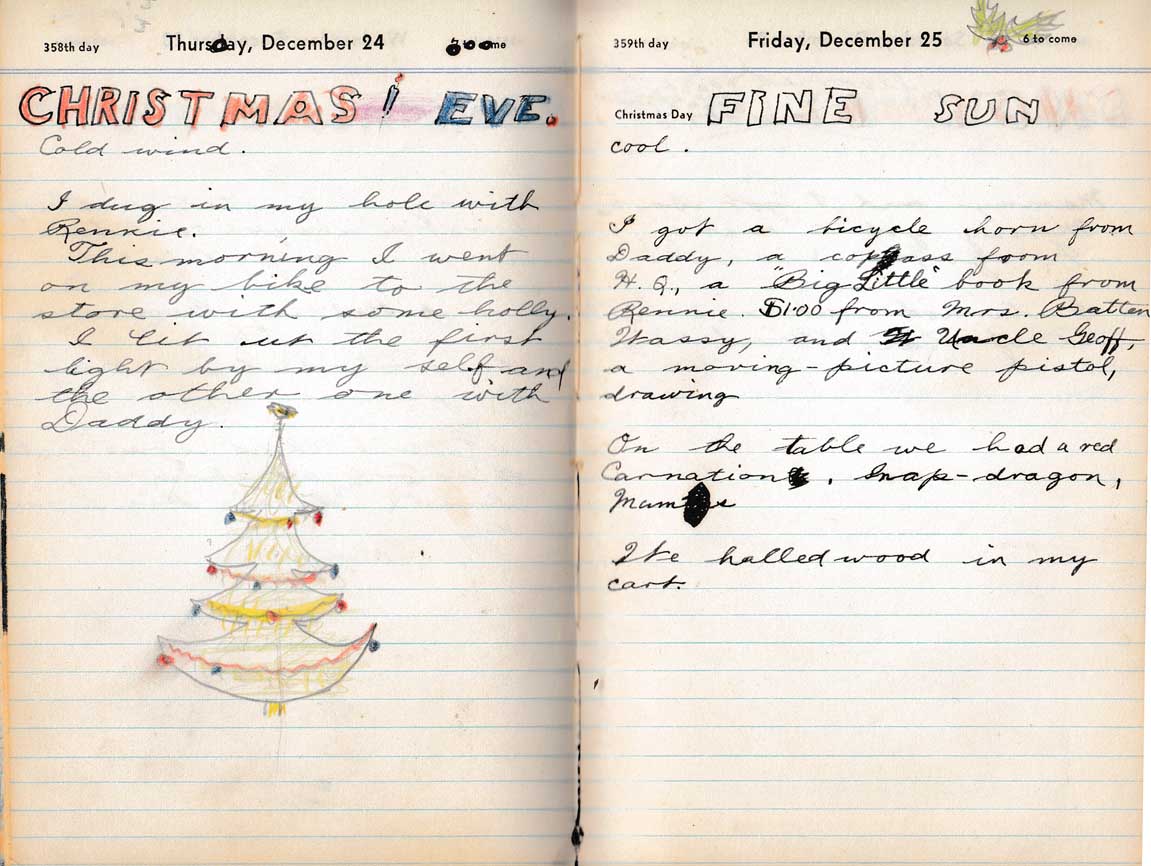 358th day
Thursday, December 24
CHRISTMAS! EVE.
Cold wind.
I dug in my hole with
Rennie.
This morning I went
on my bike to the
store with some holly.
I lit ut the first
light by my self and
the other one with
Daddy.
359th day
Friday, December 25
6 to come
Christmas Day FINE SUN
cool.
I got a bicycle horn from
Daddy, a compass from
H. Q., a "Big Little" book from
Rennie. $1.00 from Mrs. Batten
and Uncle Geoff,
a moving-picture pistol,
drawing
On the table we had a red
Carnation, Snap-dragon,
Mum
Ike halled wood in my
cart.